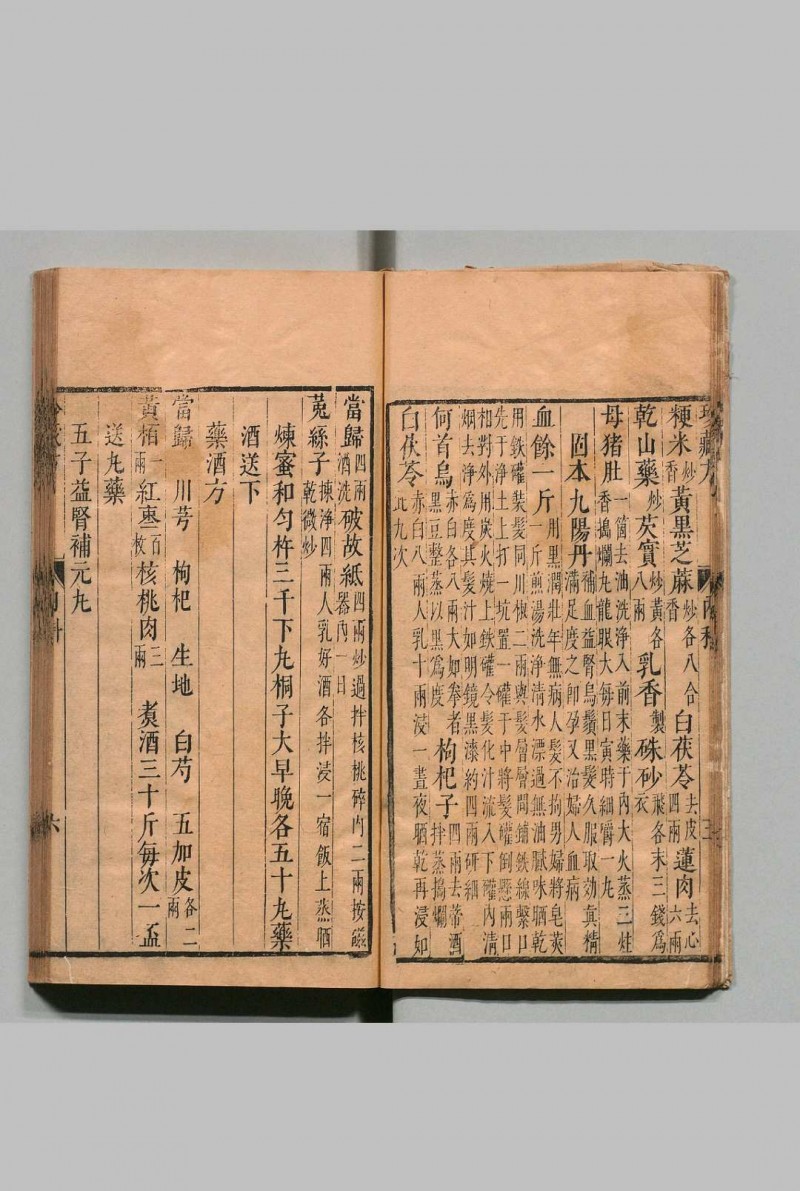 粳米炒香黃黑芝蔴炒香各八合白茯苓去皮四兩蓮肉去心六兩
乾山藥炒芡實炒黃各八兩乳香製硃砂飛各末三錢為衣
母猪肚一箇去油洗淨入前末藥于內大火蒸三炷香搗爛丸龍眼大每日寅時細嚼一丸
固本九陽丹補血益腎烏鬚黑髮久服取効真精滿足度之卽孕又治婦人血病
血餘一斤用黑潤壯年無病人髮不拘男婦將皂莢一斤煎湯洗淨清水漂過無油膩味晒乾
用鉄礶裝髮同川椒二兩與髮層層間鋪鉄線繫口先于淨土上打一坑置一礶于中將髮礶倒懸兩口
相對外用炭火燒上鉄礶令髮化汁流入下礶內清烟去淨為度其髮汁如明鏡黑漆約四兩研細
何首烏赤白各八兩大如拳者黑豆整蒸以黑為度枸杞子四兩去蒂酒拌蒸搗爛
白茯苓赤白八兩人乳十兩浸一晝夜晒乾再浸如此九次
當歸四兩酒洗破故紙四兩炒過拌核桃碎肉二兩按磁器內一日
菟絲子揀淨四兩人乳好酒各拌浸一宿飯上蒸晒乾微炒
煉蜜和勻杵三千下丸桐子大早晚各五十丸藥
酒送下
藥酒方
當歸 川芎 枸杞 生地 白芍 五加皮各二兩
黃栢一兩紅棗百枚核桃肉三兩 煮酒三十斤每次一盃
送丸藥
五子益腎補元丸
六